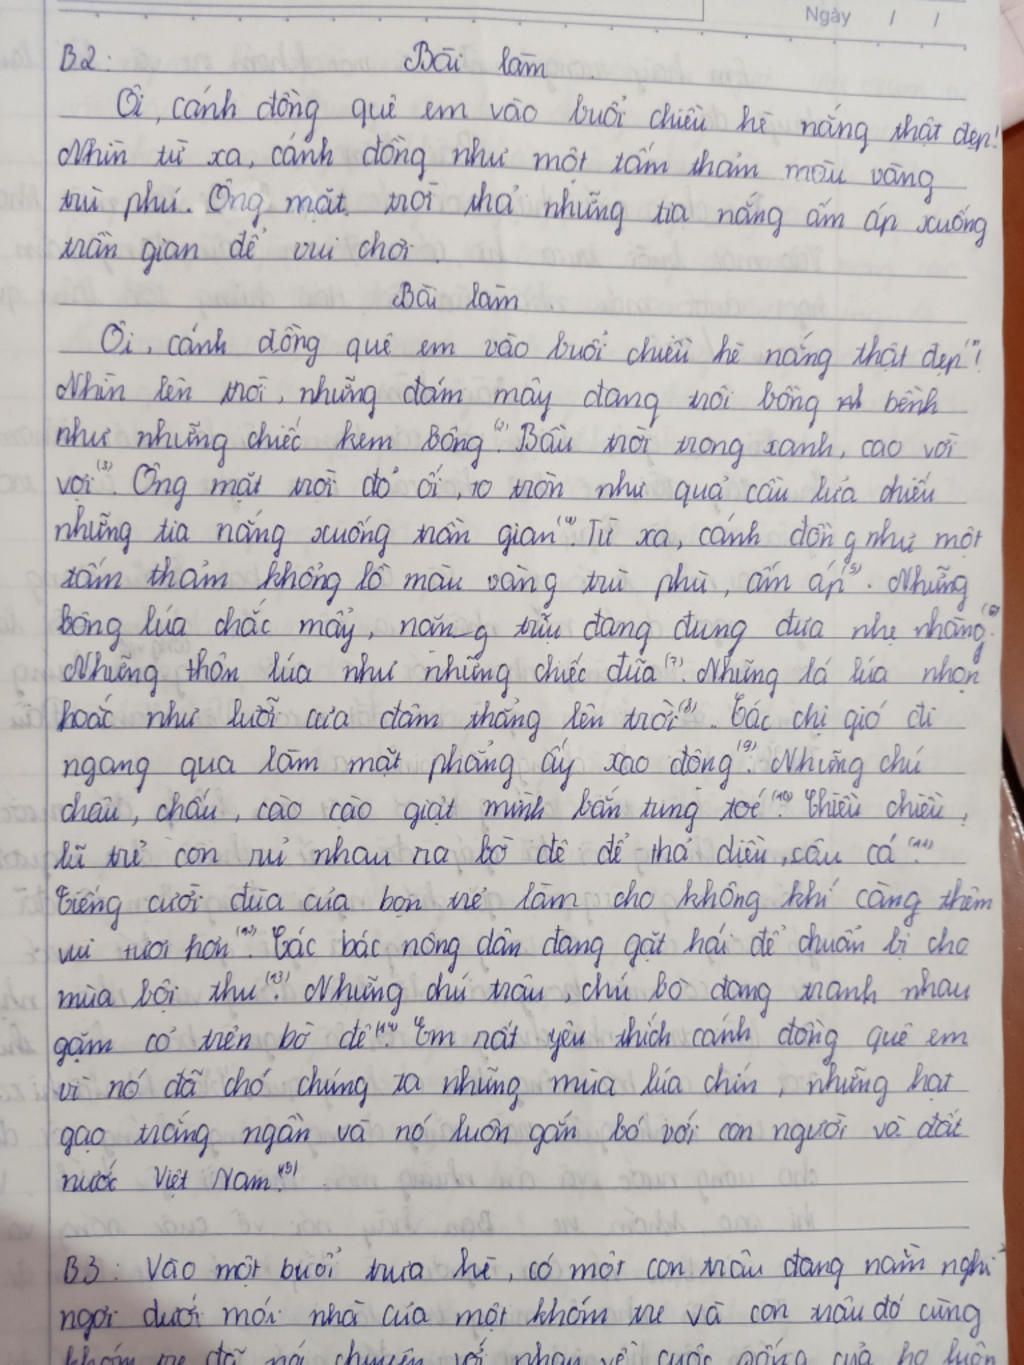 Ngày / /
B2: Bài làm
Ôi, cánh đồng quê em vào buổi chiều hè nắng thật đẹp!
Nhìn từ xa, cánh đồng như một tấm thảm màu vàng
trù phú. Ông mặt trời thả những tia nắng ấm áp xuống
trần gian để vui chơi.
Bài làm.
Ôi, cánh đồng quê em vào buổi chiều hè nắng thật đẹp⁽¹⁾!
Nhìn lên trời, những đám mây đang trôi bồng bềnh
như những chiếc kem bông⁽²⁾. Bầu trời trong xanh, cao vời
vợi⁽³⁾. Ông mặt trời đỏ ối, to tròn như quả cầu lửa chiếu
những tia nắng xuống trần gian⁽⁴⁾. Từ xa, cánh đồng như một
tấm thảm khổng lồ màu vàng trù phú, ấm áp⁽⁵⁾. Những
bông lúa chắc mẩy, nặng trĩu đang đung đưa nhẹ nhàng⁽⁶⁾.
Những thân lúa như những chiếc đũa⁽⁷⁾. Những lá lúa nhọn
hoắc như lưỡi cưa đâm thẳng lên trời⁽⁸⁾. Các chị gió đi
ngang qua làm mặt phẳng ấy xao động⁽⁹⁾. Những chú
châu, chấu, cào cào giật mình bắn tung toé⁽¹⁰⁾. Chiều chiều,
lũ trẻ con rủ nhau ra bờ đê để thả diều, câu cá⁽¹¹⁾.
Tiếng cười đùa của bọn trẻ làm cho không khí càng thêm
vui tươi hơn⁽¹²⁾. Các bác nông dân đang gặt hái để chuẩn bị cho
mùa bội thu⁽¹³⁾. Những chú trâu, chú bò đang tranh nhau
gặm cỏ trên bờ đê⁽¹⁴⁾. Em rất yêu thích cánh đồng quê em
vì nó đã cho chúng ta những mùa lúa chín, những hạt
gạo trắng ngần và nó luôn gắn bó với con người và đất
nước Việt Nam⁽¹⁵⁾.
B3: Vào một buổi trưa hè, có một con trâu đang nằm nghỉ
ngơi dưới mái nhà của một khóm tre và con trâu đó cùng
khóm tre đã nói chuyện với nhau về cuộc sống của họ luôn